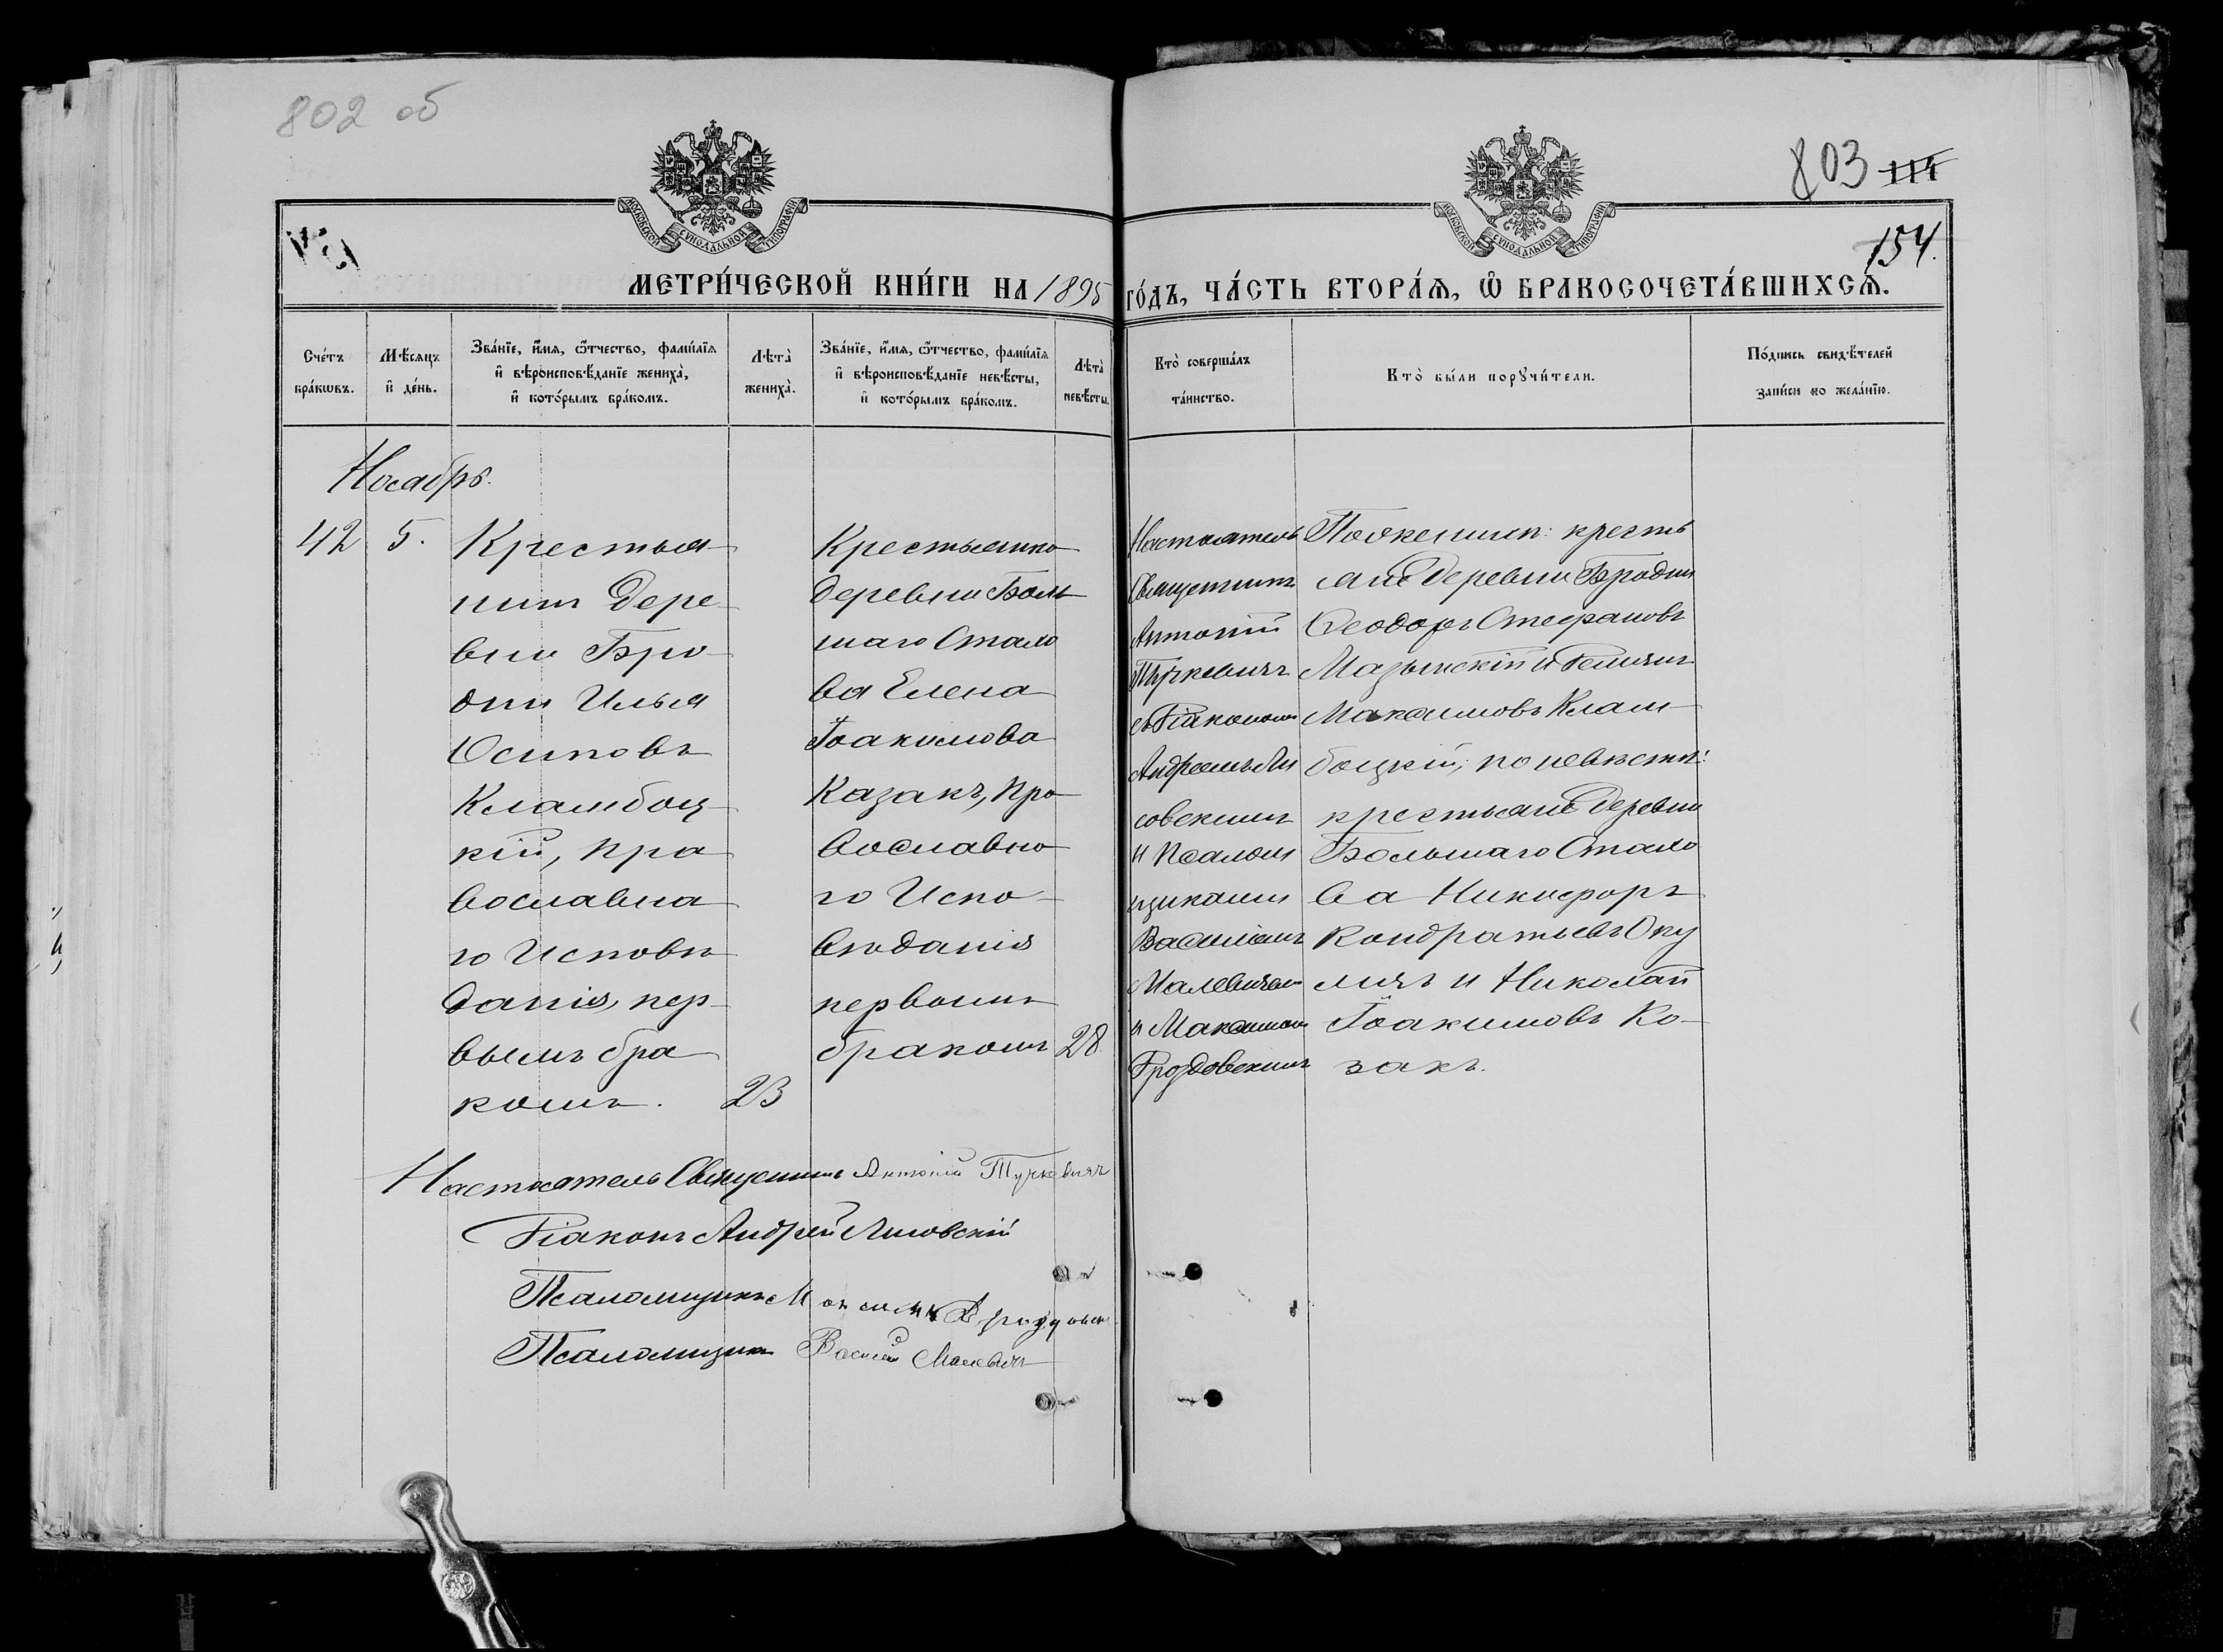 802 об
803 114
154.
МОСКОВСКОЙ СѴНОДАЛЬНОЙ ТИПОГРАФІИ
МОСКОВСКОЙ СѴНОДАЛЬНОЙ ТИПОГРАФІИ
МЕТРИ́ЧЕСКОЙ КНИ́ГИ НА 1895 ГО́ДЪ, ЧА́СТЬ ВТОРА́Я, Ѡ БРАКОСОЧЕТА́ВШИХСѦ.
Сче́тъ
бра́кѡвъ.
Мѣ́сѧцъ
и҆ де́нь.
Зва́нїе, и҆́мѧ, ѻ҆́тчество, фамилїѧ
и҆ вѣроисповѣ́данїе жениха̀,
и҆ кото́рымъ бра́комъ.
Лѣта̀
жениха̀.
Зва́нїе, и҆́мѧ, ѻ҆́тчество, фамилїѧ
и҆ вѣроисповѣ́данїе невѣ́сты,
и҆ кото́рымъ бра́комъ.
Лѣта̀
невѣ́сты.
Кто̀ соверша́лъ
та́инство.
Кто̀ бы́ли порꙋчи́тели.
По́дпись свидѣ́телей
за́писи по жела́нїю.
Ноябрь.
42
5.
Крестья
нинъ дере
вни Бро
дни Илья
Осиповъ
Кламбоц
кій, пра
вославна
го исповѣ
данія, пер
вымъ бра
комъ.
23
Крестьянка
деревни Боль
шаго Стахо
ва Елена
Іоакимова
Казакъ, пра
вославно
го испо
вѣданія
первымъ
бракомъ
28
Настоятель
Священникъ
Антоній
Туркевичъ
съ Діакономъ
Андреемъ Ли
совскимъ
и Псалом
щиками
Василіемъ
Малевичемъ
и Максимомъ
Дроздовскимъ
По женихѣ: кресть
яне деревни Бродни
Ѳеодоръ Стефановъ
Мазынскій и Демьян
Максимовъ Клам
боцкій; по невѣстѣ:
крестьяне деревни
Большаго Стахо
ва Никифоръ
Кондратьевъ Оку
личъ и Николай
Іоакимовъ Ка
закъ.
Настоятель Священникъ Антоній Туркевичъ
Діаконъ Андрей Лисовскій
Псаломщикъ Максимъ Дроздовск
Псаломщикъ Василій Малевичъ